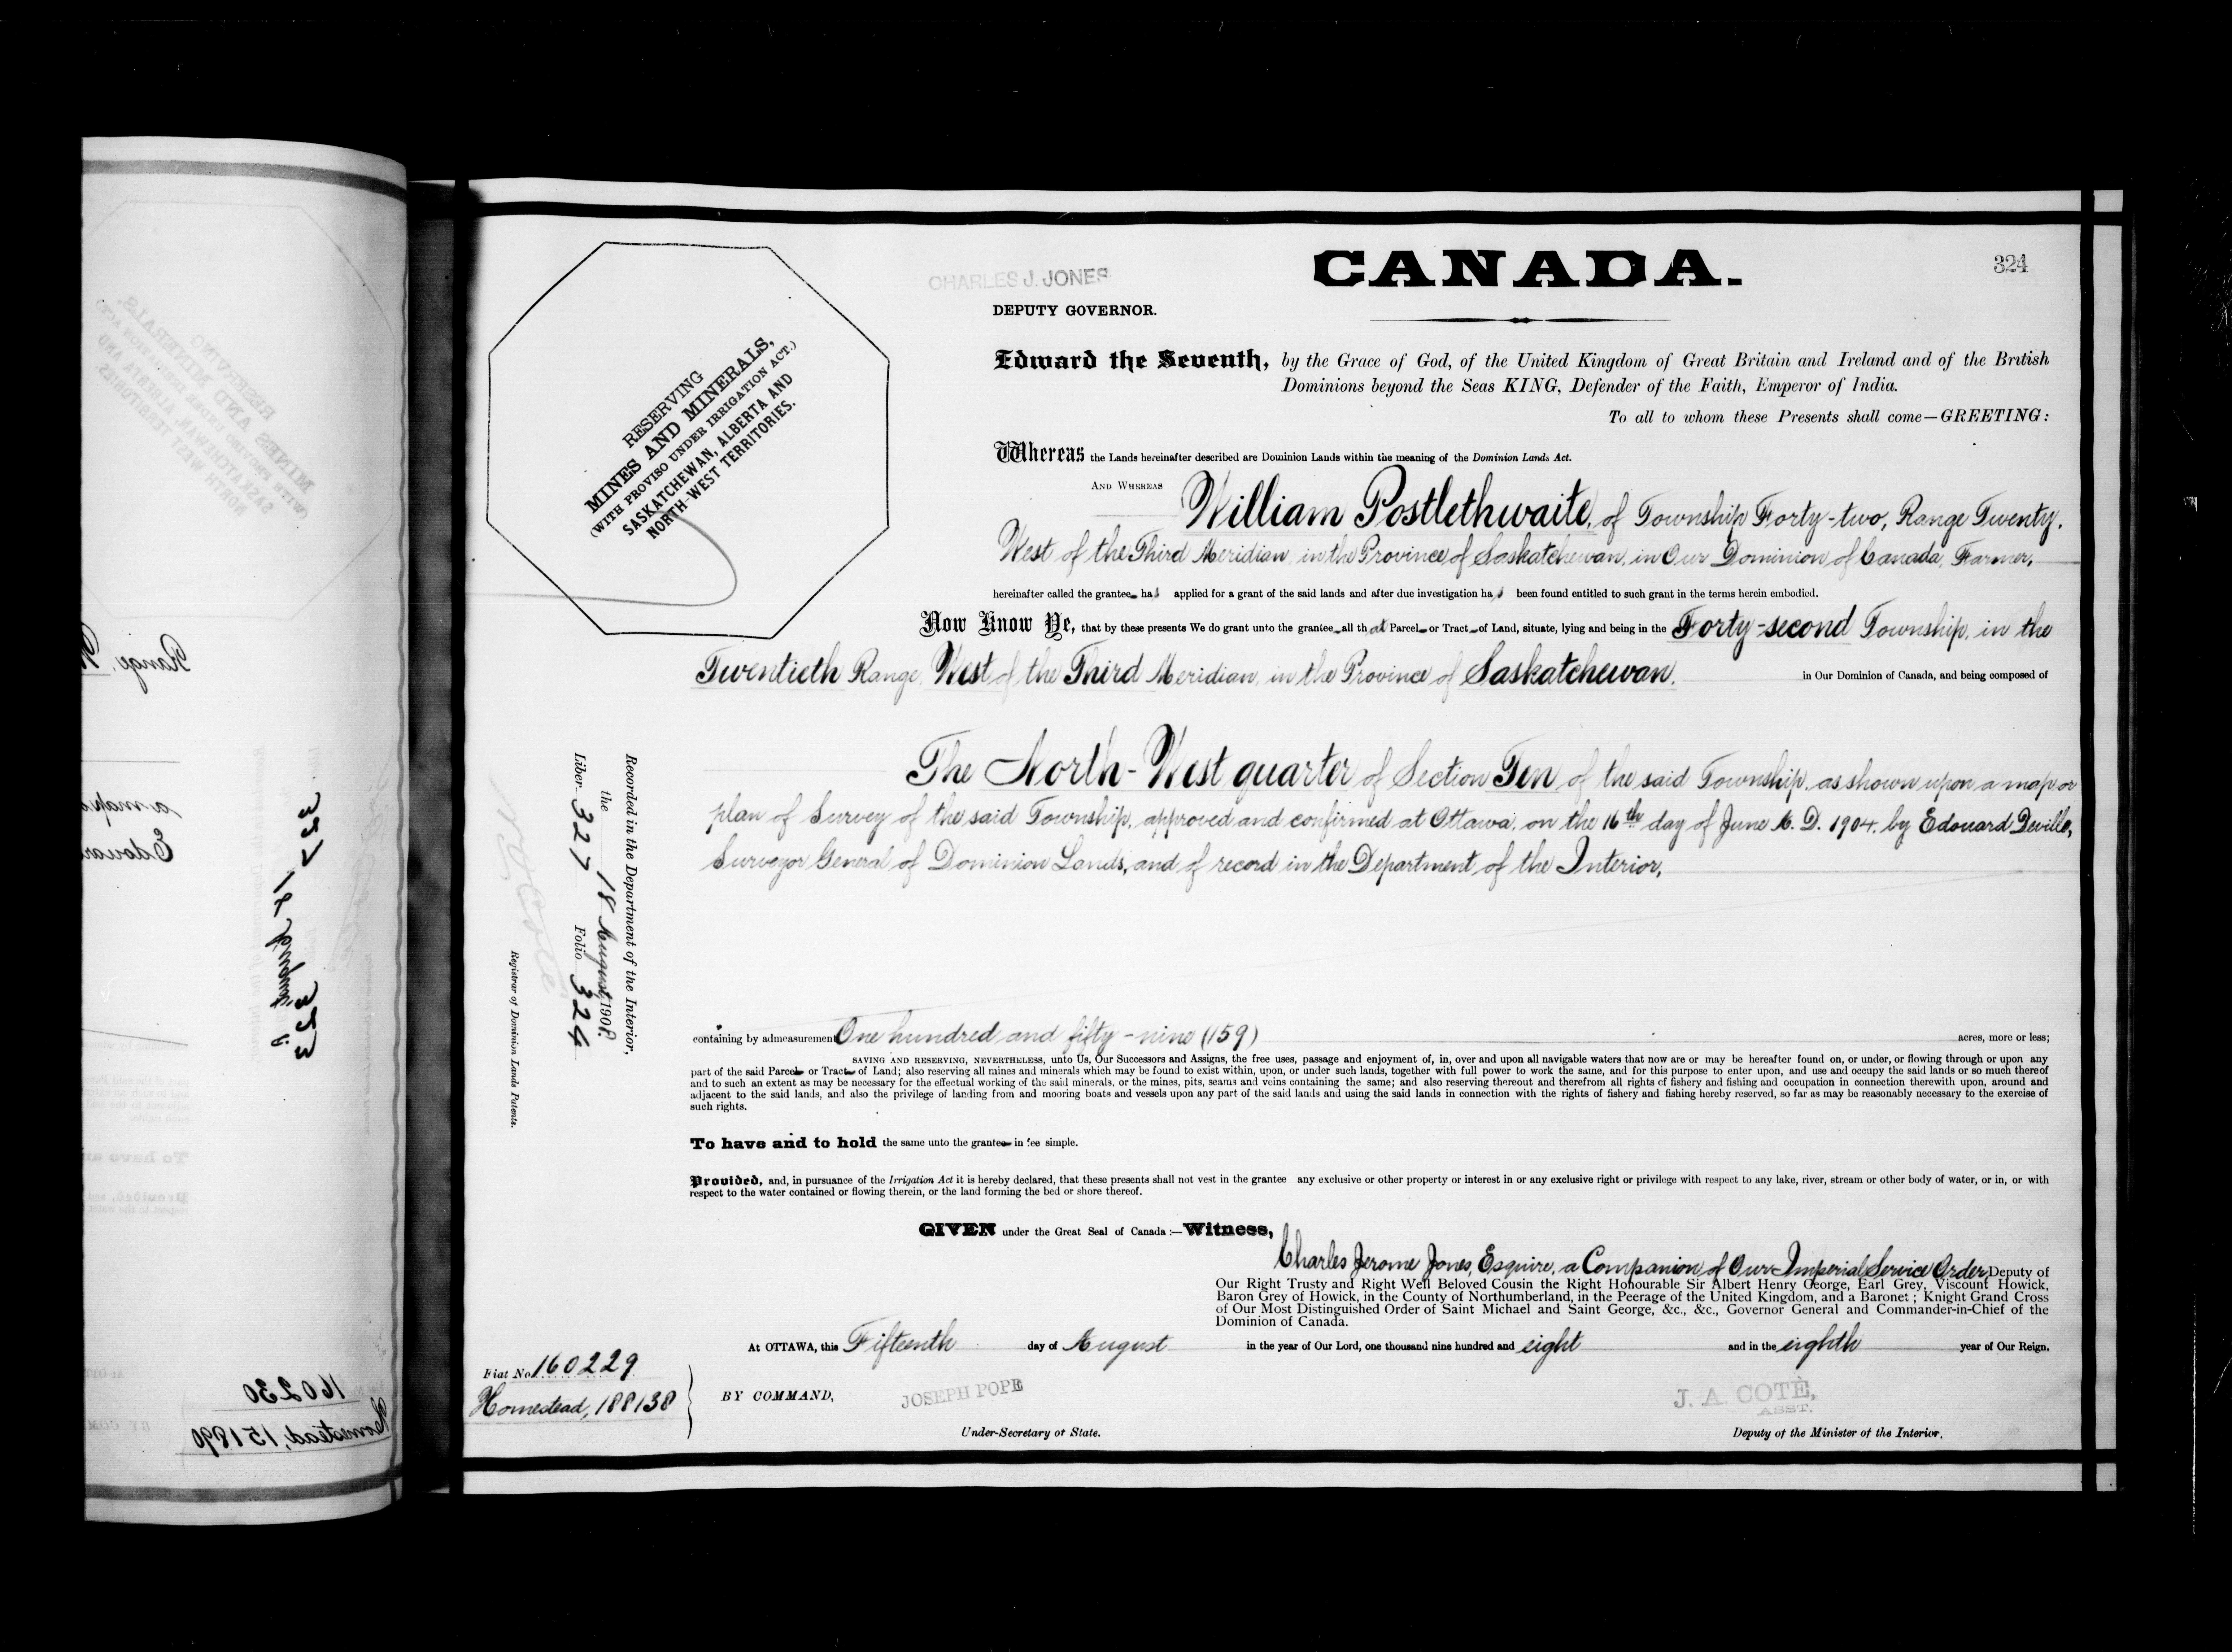 CANADA.
324
CHARLES J. JONES
DEPUTY GOVERNOR.
RESERVING
MINES AND MINERALS,
(WITH PROVISO UNDER IRRIGATION ACT.)
SASKATCHEWAN, ALBERTA AND
NORTH-WEST TERRITORIES.
Edward the Seventh, by the Grace of God, of the United Kingdom of Great Britain and Ireland and of the British
Dominions beyond the Seas KING, Defender of the Faith, Emperor of India.
To all to whom these Presents shall come—GREETING:
Whereas the Lands hereinafter described are Dominion Lands within the meaning of the Dominion Lands Act.
AND WHEREAS William Postlethwaite, of Township Forty-two, Range Twenty,
West of the Third Meridian, in the Province of Saskatchewan, in Our Dominion of Canada, Farmer,
hereinafter called the grantee has applied for a grant of the said lands and after due investigation has been found entitled to such grant in the terms herein embodied.
Now Know Ye, that by these presents We do grant unto the grantee all that Parcel or Tract of Land, situate, lying and being in the Forty-second Township, in the
Twentieth Range, West of the Third Meridian, in the Province of Saskatchewan, in Our Dominion of Canada, and being composed of
The North-West quarter of Section Ten of the said Township, as shown upon a map or
plan of Survey of the said Township, approved and confirmed at Ottawa, on the 16th day of June A. D. 1904, by Edouard Deville,
Surveyor General of Dominion Lands, and of record in the Department of the Interior,
Recorded in the Department of the Interior,
the 18 August, 1908.
Liber 327 Folio 324
N. O. Coté
Registrar of Dominion Lands Patents.
containing by admeasurement One hundred and fifty-nine (159) acres, more or less;
SAVING AND RESERVING, NEVERTHELESS, unto Us, Our Successors and Assigns, the free uses, passage and enjoyment of, in, over and upon all navigable waters that now are or may be hereafter found on, or under, or flowing through or upon any
part of the said Parcel or Tract of Land; also reserving all mines and minerals which may be found to exist within, upon, or under such lands, together with full power to work the same, and for this purpose to enter upon, and use and occupy the said lands or so much thereof
and to such an extent as may be necessary for the effectual working of the said minerals, or the mines, pits, seams and veins containing the same; and also reserving thereout and therefrom all rights of fishery and fishing and occupation in connection therewith upon, around and
adjacent to the said lands, and also the privilege of landing from and mooring boats and vessels upon any part of the said lands and using the said lands in connection with the rights of fishery and fishing hereby reserved, so far as may be reasonably necessary to the exercise of
such rights.
To have and to hold the same unto the grantee in fee simple.
Provided, and, in pursuance of the Irrigation Act it is hereby declared, that these presents shall not vest in the grantee any exclusive or other property or interest in or any exclusive right or privilege with respect to any lake, river, stream or other body of water, or in, or with
respect to the water contained or flowing therein, or the land forming the bed or shore thereof.
GIVEN under the Great Seal of Canada:—Witness,
Charles Jerome Jones, Esquire, a Companion of Our Imperial Service Order, Deputy of
Our Right Trusty and Right Well Beloved Cousin the Right Honourable Sir Albert Henry George, Earl Grey, Viscount Howick,
Baron Grey of Howick, in the County of Northumberland, in the Peerage of the United Kingdom, and a Baronet; Knight Grand Cross
of Our Most Distinguished Order of Saint Michael and Saint George, &c., &c., Governor General and Commander-in-Chief of the
Dominion of Canada.
At OTTAWA, this Fifteenth day of August in the year of Our Lord, one thousand nine hundred and eight and in the eighth year of Our Reign.
Fiat No. 160229
Homestead, 188138
BY COMMAND,
JOSEPH POPE
Under-Secretary of State.
J. A. COTÉ,
ASST.
Deputy of the Minister of the Interior.
Range, W
a map o
Edouar
160230
Homestead, 151890